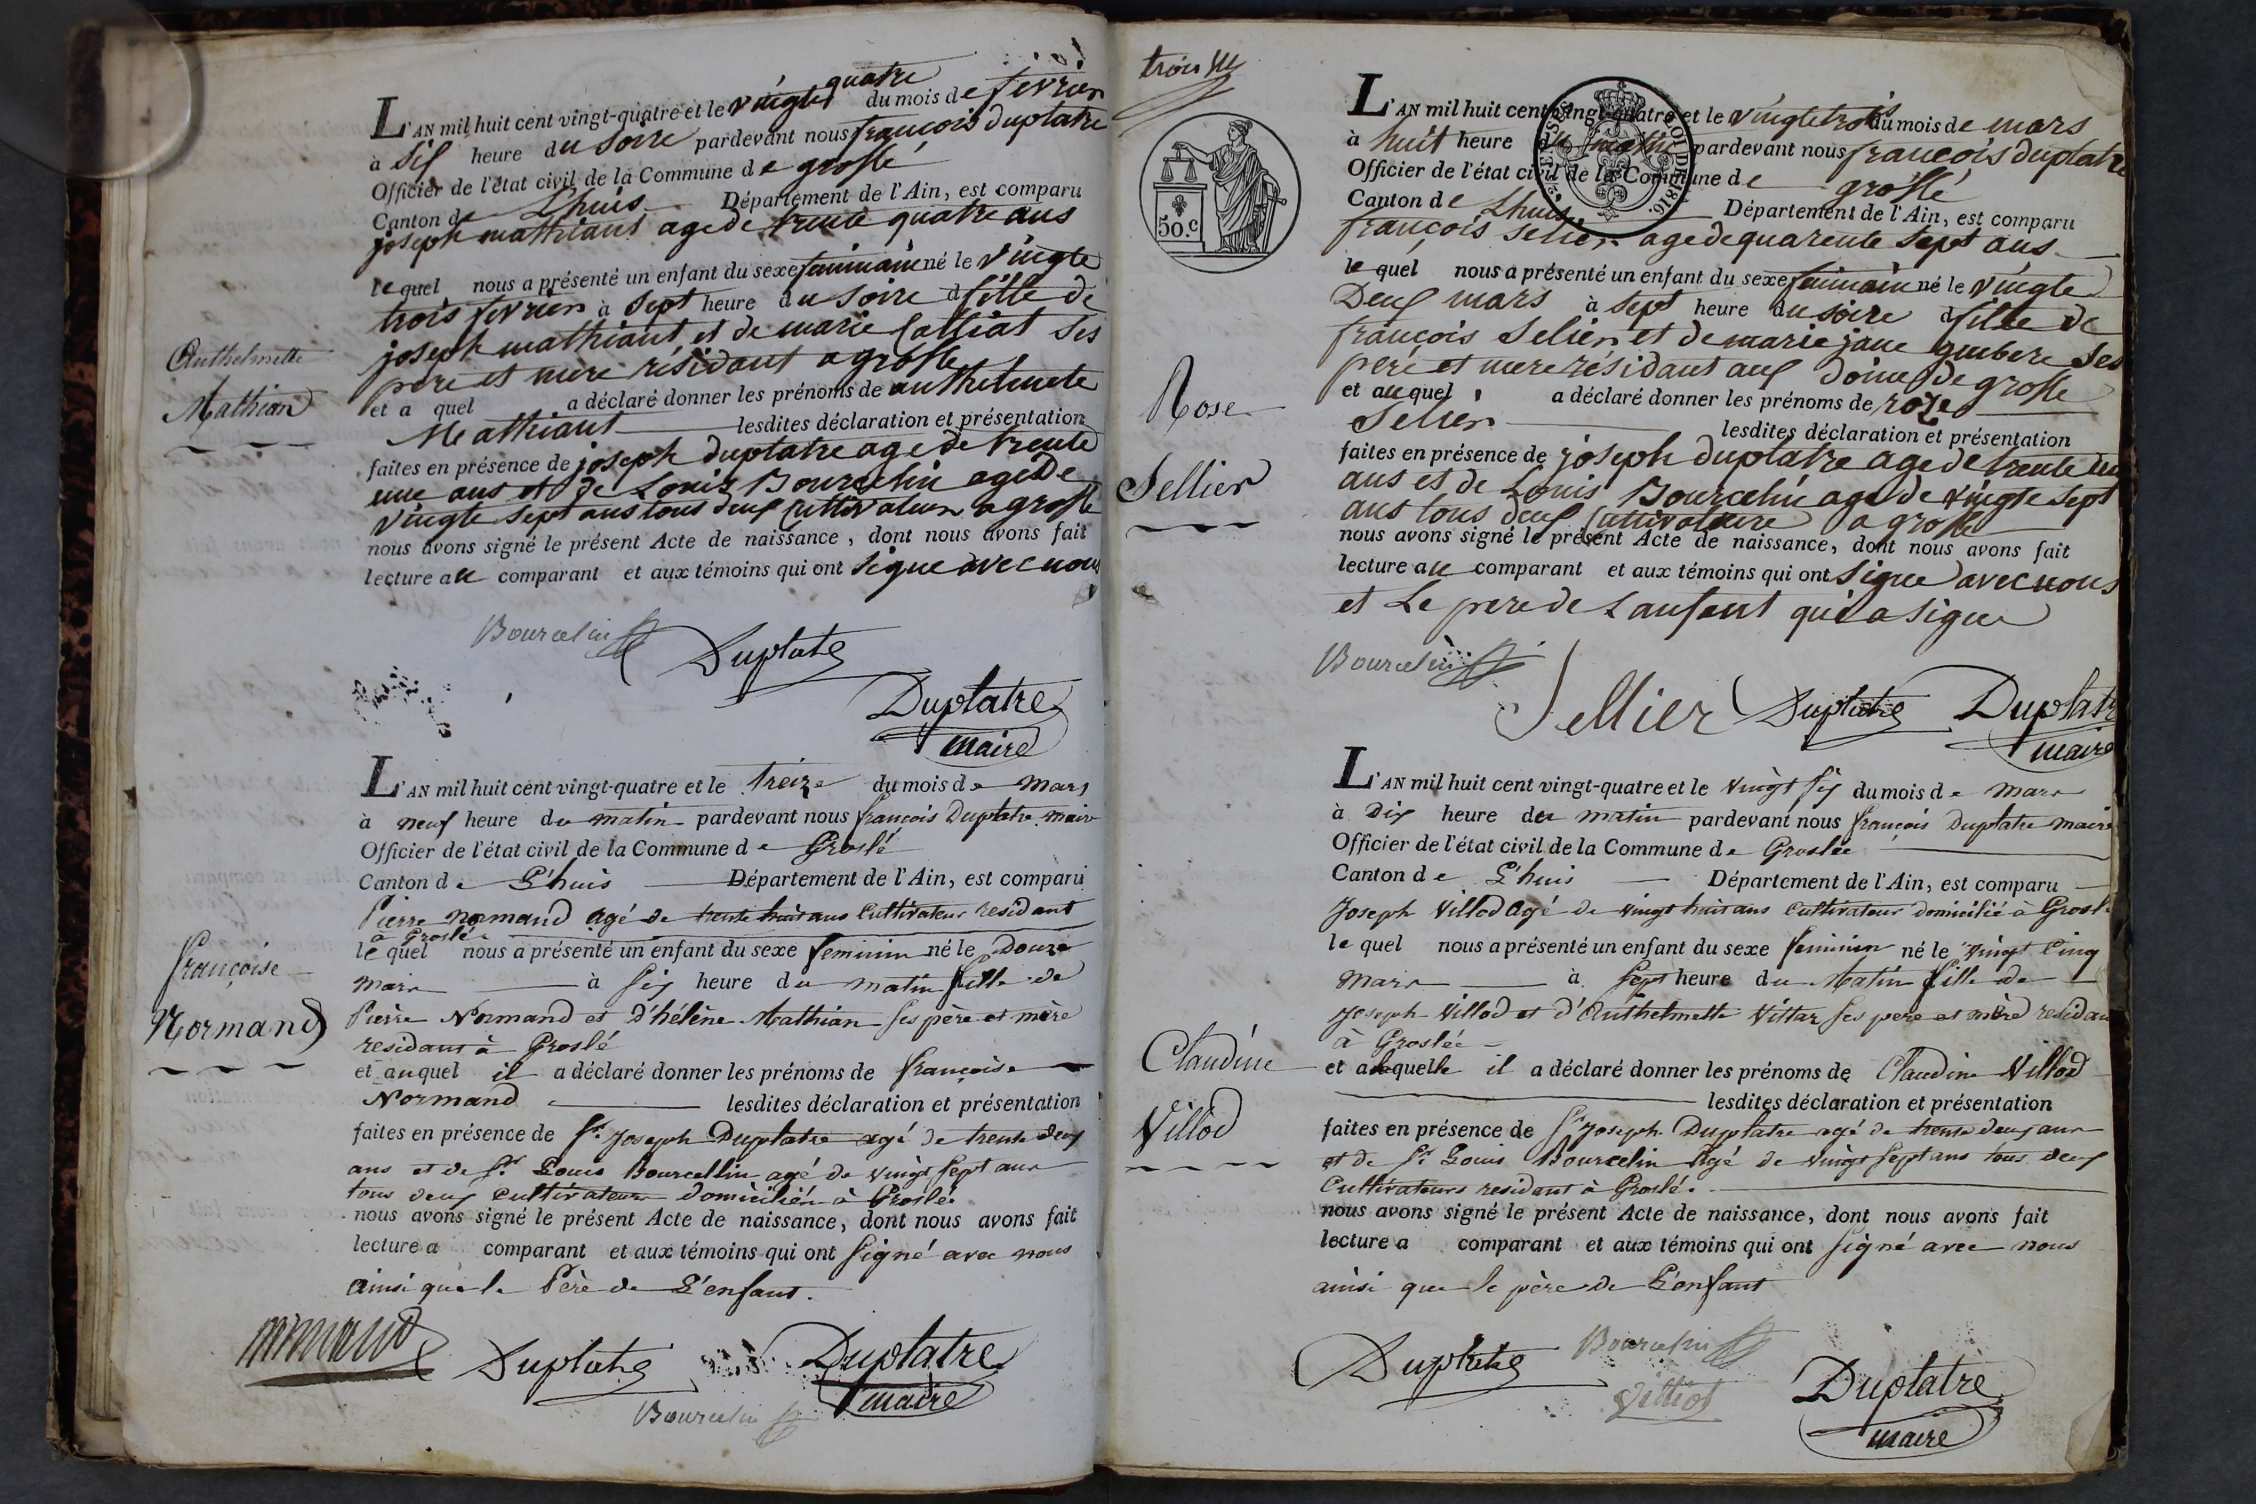 L'AN mil huit cent vingt-quatre et le vingte quatre du mois de fevrier
à sis heure du soire pardevant nous francois duplatre
Officier de l'état civil de la Commune de groslé
Canton de Lhuis Département de l'Ain, est comparu
joseph mathiant age de trente quatre ans
le quel nous a présenté un enfant du sexe feminain né le vingte
trois fevrier à sept heure du soire d fille de
joseph mathiant et de marie Calliat ses
pere et mere résidant a grosle
et a quel a déclaré donner les prénoms de anthelmete
Mathiant lesdites déclaration et présentation
faites en présence de joseph duplatre age de trente
une ans et de Louis Bourcelin age de
vingte sept ans tous deux Cultivateur a grosle
nous avons signé le présent Acte de naissance, dont nous avons fait
lecture au comparant et aux témoins qui ont signe avec nous
Anthelmette
Mathian
Bourcelin
Duplatre
Duplatre
maire
L'AN mil huit cent vingt-quatre et le treize du mois de mars
à neuf heure du matin pardevant nous françois Duplatre maire
Officier de l'état civil de la Commune de Groslé
Canton de L'huis Département de l'Ain, est comparu
Pierre normand agé de trente huit ans Cultivateur residant
à Groslé
le quel nous a présenté un enfant du sexe feminin né le Douze
mars à six heure du matin fille de
Pierre Normand et D'hélène Mathian ses père et mère
residant à Groslé
et auquel il a déclaré donner les prénoms de françoise
Normand lesdites déclaration et présentation
faites en présence de Sr. Joseph Duplatre agé de trente deux
ans et de Sr. Louis Bourcellin agé de vingt sept ans
tous deux Cultivateurs domiciliés à Groslé
nous avons signé le présent Acte de naissance, dont nous avons fait
lecture a comparant et aux témoins qui ont signé avec nous
ainsi que le Père de L'enfant.
françoise
Normand
normand
Duplatre
Duplatre
maire
Bourcelin
trois
50.c
L'AN mil huit cent vingt-quatre et le vingtetrois du mois de mars
à huit heure du matin pardevant nous francois duplatre
Officier de l'état civil de la Commune de groslé
Canton de Lhuis Département de l'Ain, est comparu
françois selier age de quarente sept ans
le quel nous a présenté un enfant du sexe feminain né le vingte
Deux mars à sept heure du soire d fille de
françois selier et de marie jane gubere ses
pere et mere résidant aux domes de grosle
et au quel a déclaré donner les prénoms de roze
selier lesdites déclaration et présentation
faites en présence de joseph duplatre age de trente un
ans et de Louis Bourcelin age de vingte sept
ans tous deux Cultivateure a grosle
nous avons signé le présent Acte de naissance, dont nous avons fait
lecture au comparant et aux témoins qui ont signe avec nous
et Le pere de Lanfant qui a signe
Rose
Sellier
LOI DE 1816.
Bourcelin
Sellier
Duplatre
Duplatre
maire
L'AN mil huit cent vingt-quatre et le vingt six du mois de mars
à Dix heure du matin pardevant nous françois Duplatre maire
Officier de l'état civil de la Commune de Groslée
Canton de L'huis Département de l'Ain, est comparu
Joseph Villod agé de vingt huit ans Cultivateur domicilié à Groslé
le quel nous a présenté un enfant du sexe feminin né le vingt Cinq
mars à sept heure du Matin fille de
Joseph Villod et d'Anthelmette Vittar ses pere et mère residan
à Groslée
et a laquelle il a déclaré donner les prénoms de Claudine Villod
lesdites déclaration et présentation
faites en présence de Sr. Joseph Duplatre agé de trente deux ans
et de Sr. Louis Bourcelin agé de vingt sept ans tous deux
Cultivateurs residant à Groslé.
nous avons signé le présent Acte de naissance, dont nous avons fait
lecture a comparant et aux témoins qui ont signé avec nous
ainsi que le père de L'enfant
Claudine
Villod
Duplatre
Bourcelin
Villiot
Duplatre
maire